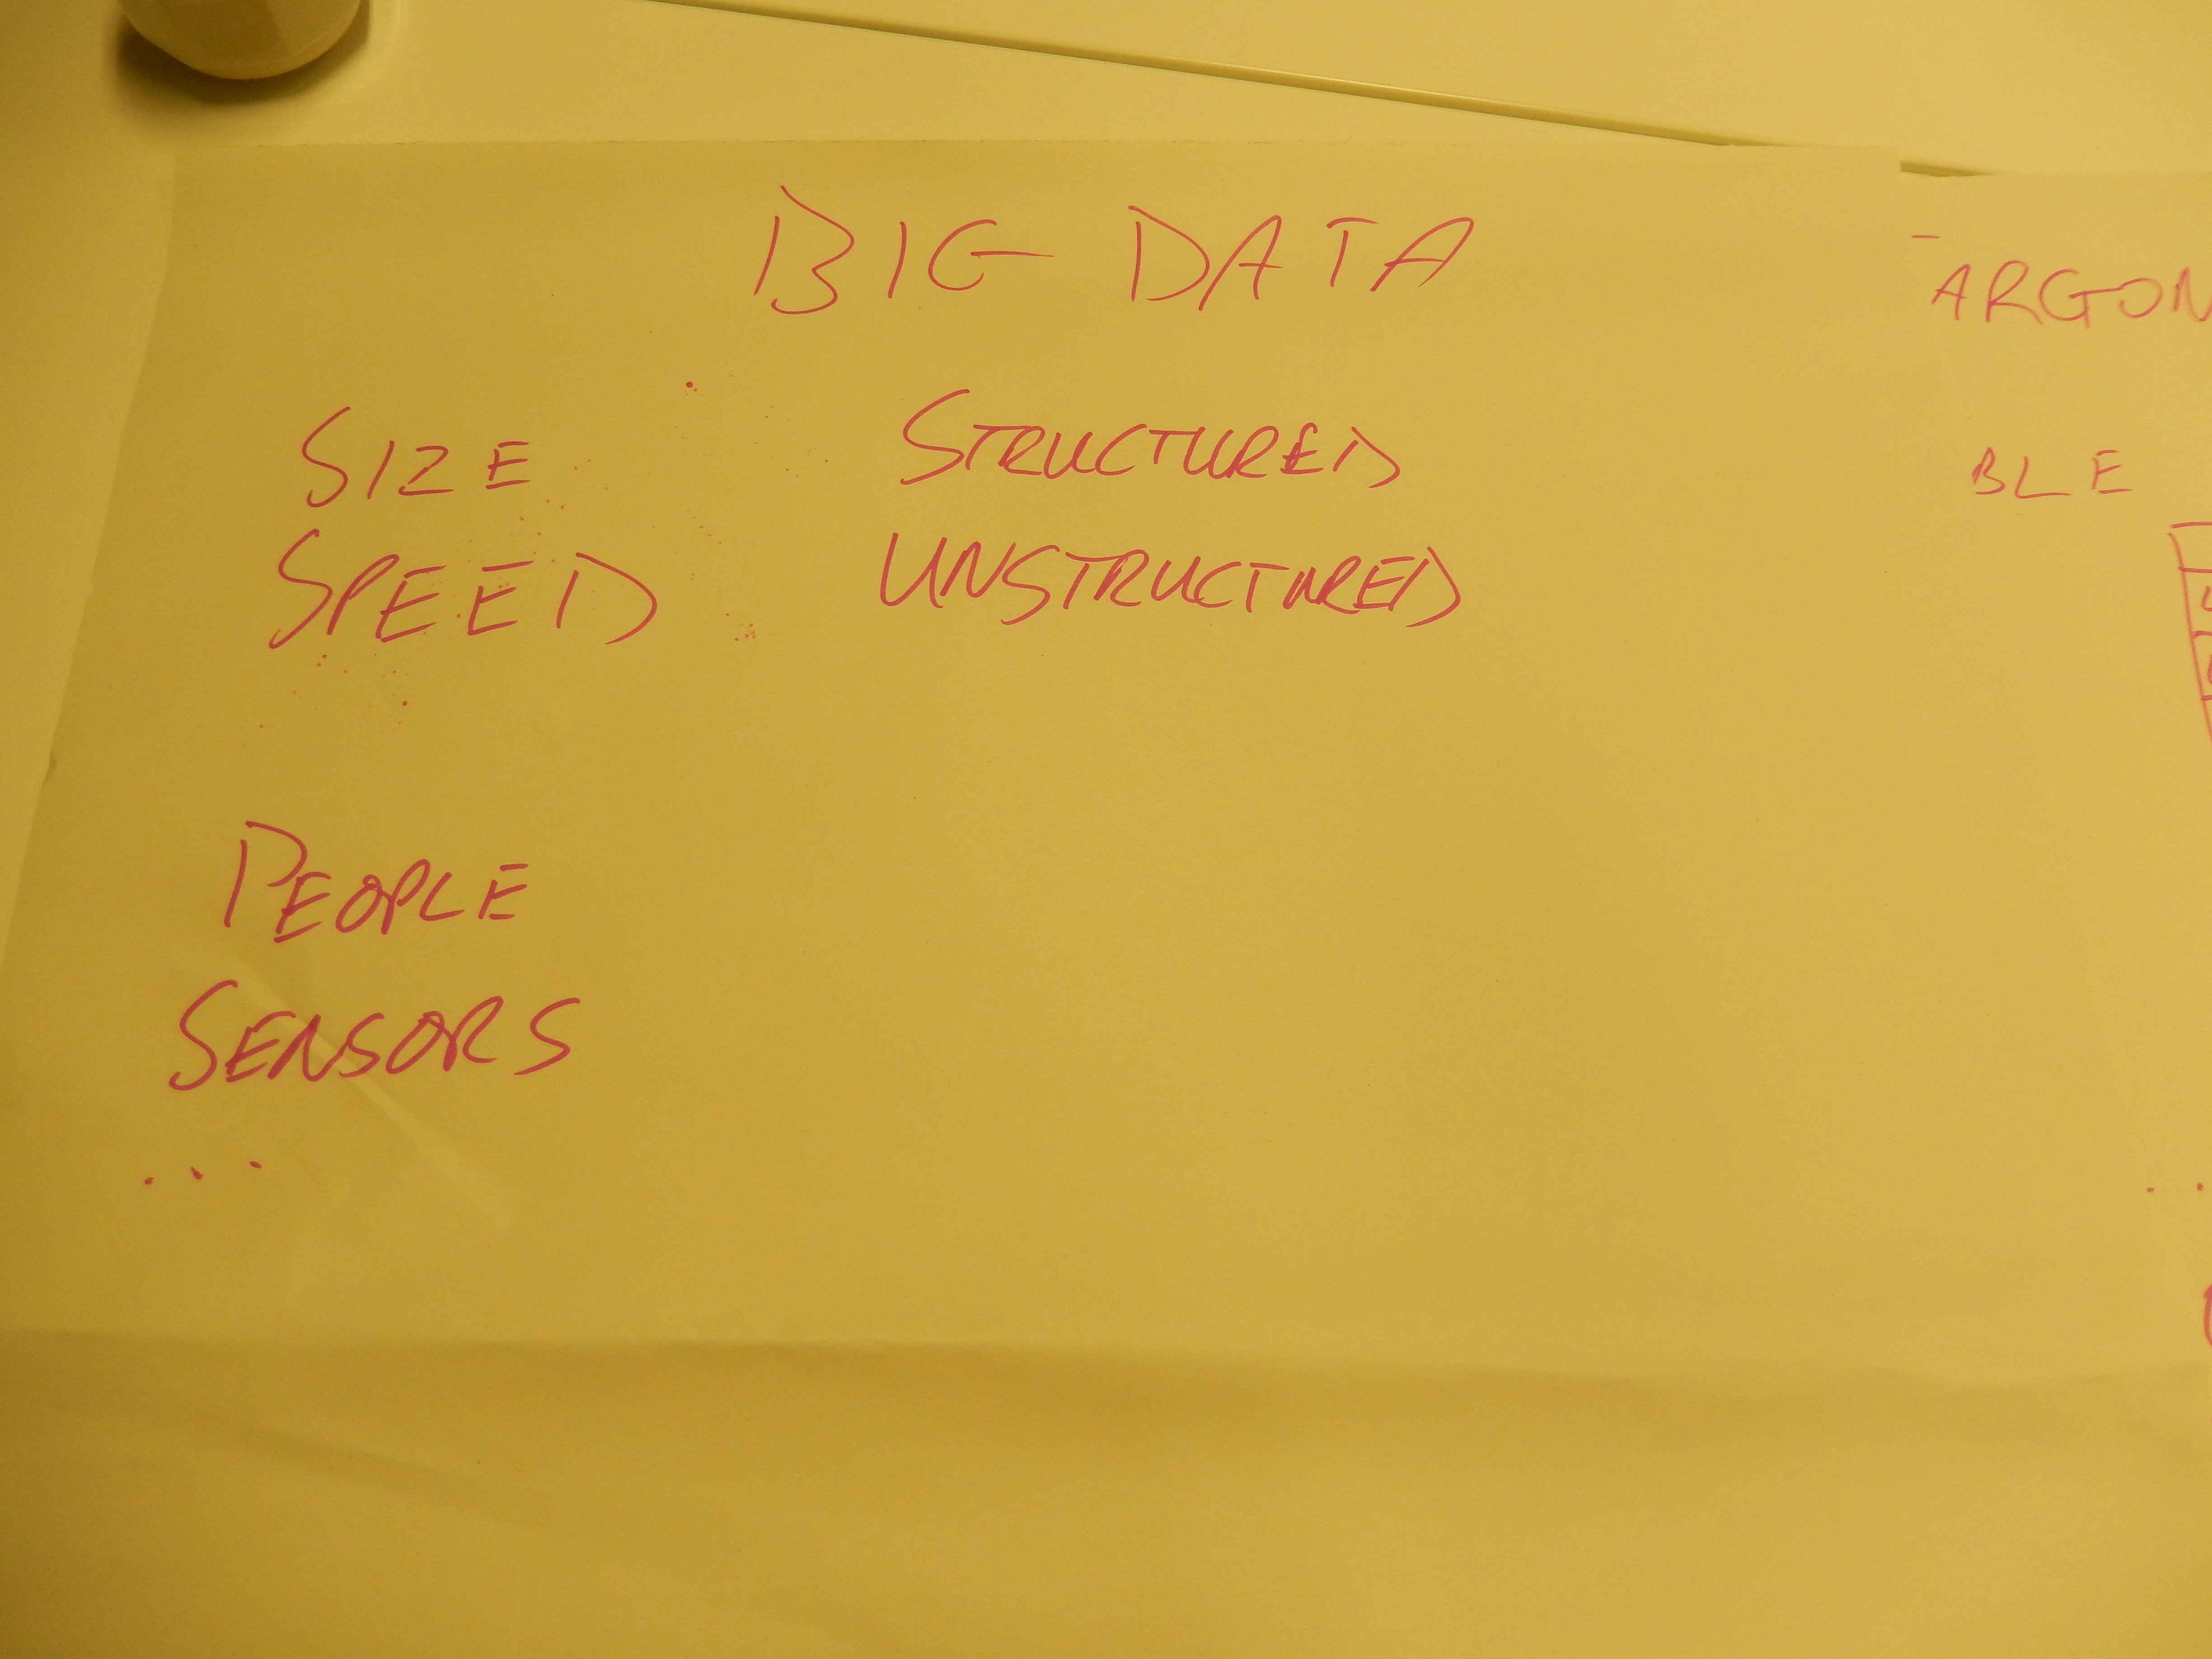 BIG DATA
SIZE STRUCTURED
SPEED UNSTRUCTURED
PEOPLE
SENSORS
...
ARGON
BLE